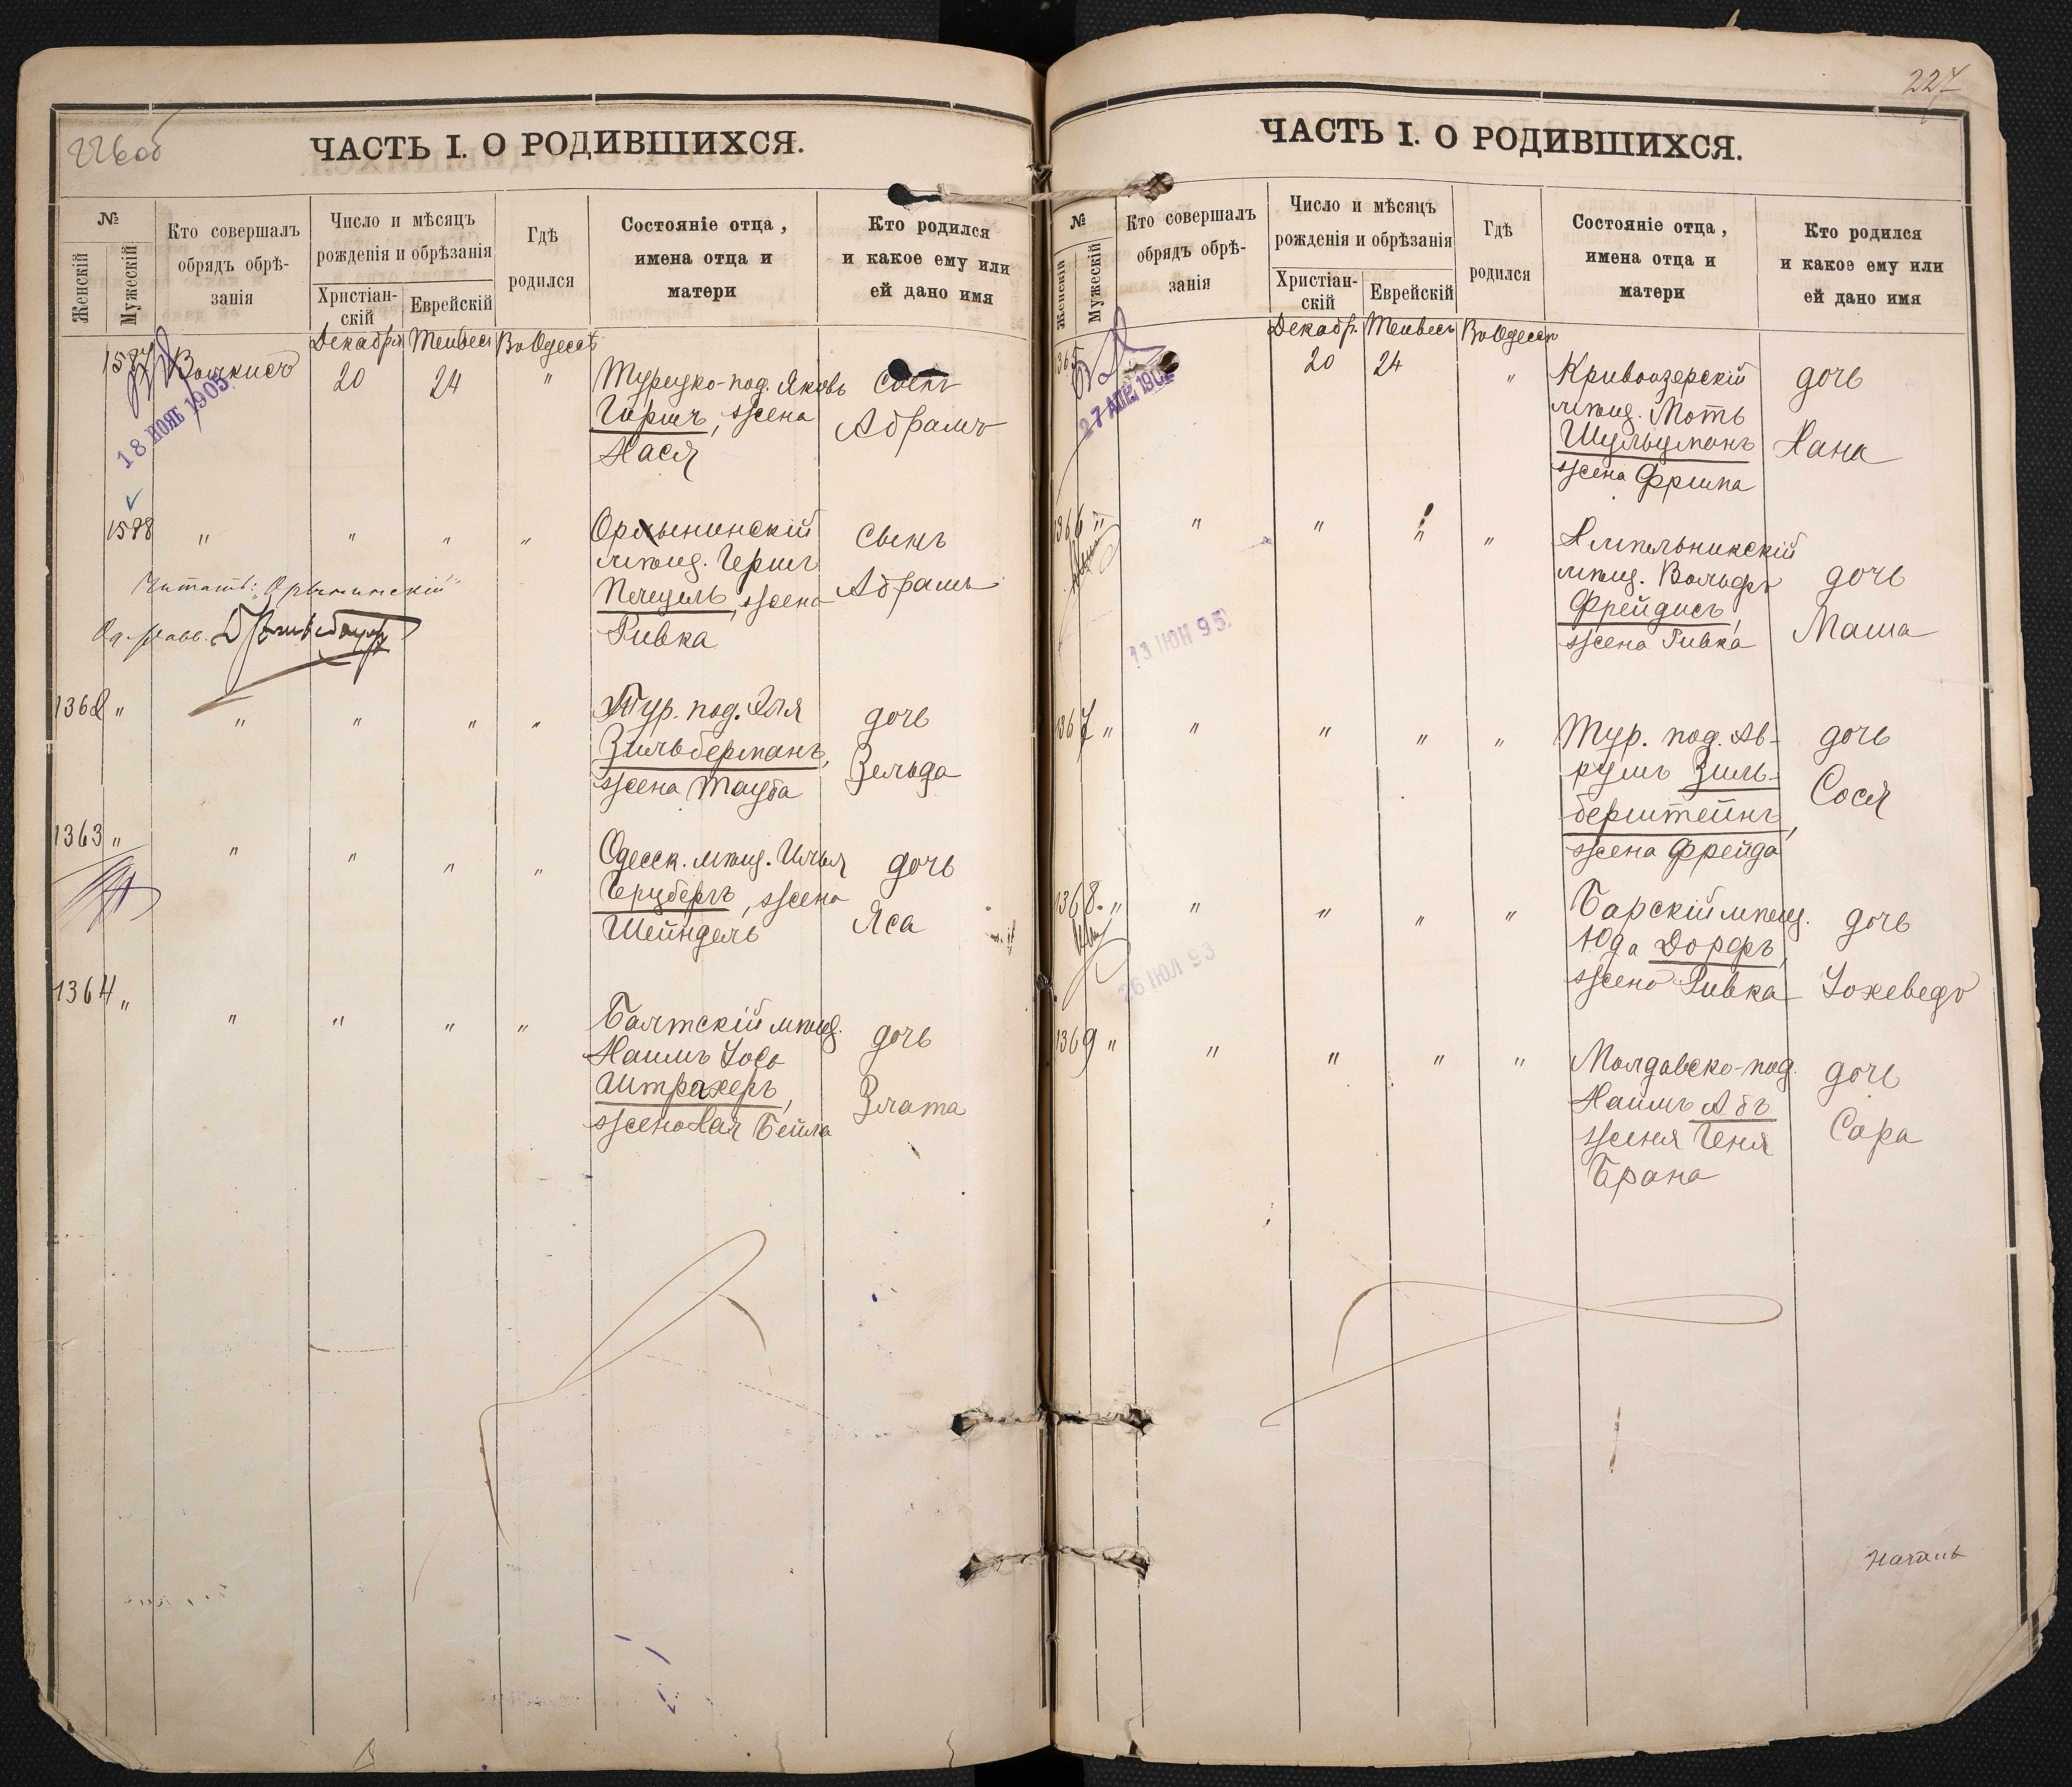 226об
ЧАСТЬ I. О РОДИВШИХСЯ.
№
Женскій
Мужескій
Кто совершалъ
обрядъ обрѣ-
занія
Число и мѣсяцъ
рожденія и обрѣзанія
Христіан-
скій
Еврейскій
Гдѣ
родился
Состояніе отца,
имена отца и
матери
Кто родился
и какое ему или
ей дано имя
Декабря Тейвесъ Въ Одессѣ
20 24 " Турецко-под. Яковъ
Гиршъ, жена
Хася
сынъ
Абрамъ
18 НОЯБ 1905
1588 " " " "
мѣщ. Герш
жена
Ривка
сынъ
Абрамъ
Читать: "Орынинскій"
Од. Равв.
1362 " " " " "
Тур. под. Эля
Зильберманъ,
жена Тауба
дочь
Зельда
1363 " " " " "
Одесск. мѣщ. Илья
Герцбергъ, жена
Шейндель
дочь
Яса
1364 " " " " "
Балтскій мѣщ.
Хаимъ Іось
Штрахеръ,
жена Хая Бейла
дочь
Злата
227
ЧАСТЬ I. О РОДИВШИХСЯ.
№
Женскій
Мужескій
Кто совершалъ
обрядъ обрѣ-
занія
Число и мѣсяцъ
рожденія и обрѣзанія
Христіан-
скій
Еврейскій
Гдѣ
родился
Состояніе отца,
имена отца и
матери
Кто родился
и какое ему или
ей дано имя
Декабр. Тейвесъ Въ Одессѣ
1365 20 24 "
Кривоозерскій
мѣщ. Моть
Шульцманъ
жена Фрима
дочь
Хана
27 АПР. 190
1366 " " " " "
Хмельникскій
мѣщ. Вольфъ
Фрейдисъ,
жена Ривка
дочь
Маша
13 ІЮН 95.
1367 " " " " "
Тур. под. Ав-
румъ Зиль-
берштейнъ,
жена Фрейда
дочь
Сося
1368. " " " " "
Барскій мѣщ.
Юда Дорфъ,
жена Ривка
дочь
Іохеведъ
26 ІЮЛ 93
1369 " " " " "
Молдавско-под.
Хаимъ Абъ
жена Геня
Брана
дочь
Сара